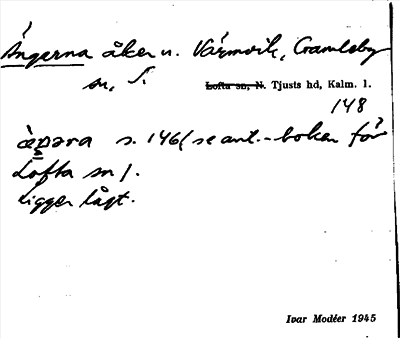 Ängerna åker u. Värmvik, Gamleby
sn, S.
Lofta sn, N. Tjusts hd, Kalm. l.
148
s. 146 (se ant.-boken för
Lofta sn).
Ligger lågt.
Ivar Modéer 1945